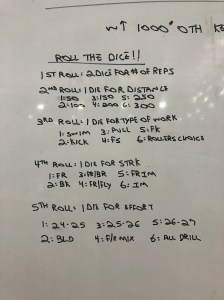 W↑ 1000' OTH KE
ROLL THE DICE!!
1ST ROLL: 2 DICE FOR # OF REPS
2ND ROLL: 1 DIE FOR DISTANCE
1: 50 3: 150 5: 250
2: 100 4: 200 6: 300
3RD ROLL: 1 DIE FOR TYPE OF WORK
1: SWIM 3: PULL 5: FK
2: KICK 4: FS 6: ROLLERS CHOICE
4TH ROLL: 1 DIE FOR STRK
1: FR 3: FR/BR 5: FRIM
2: BK 4: FR/FLY 6: IM
5TH ROLL: 1 DIE FOR EFFORT
1: 24-25 3: 25-26 5: 26-27
2: BLD 4: F/E MIX 6: ALL DRILL